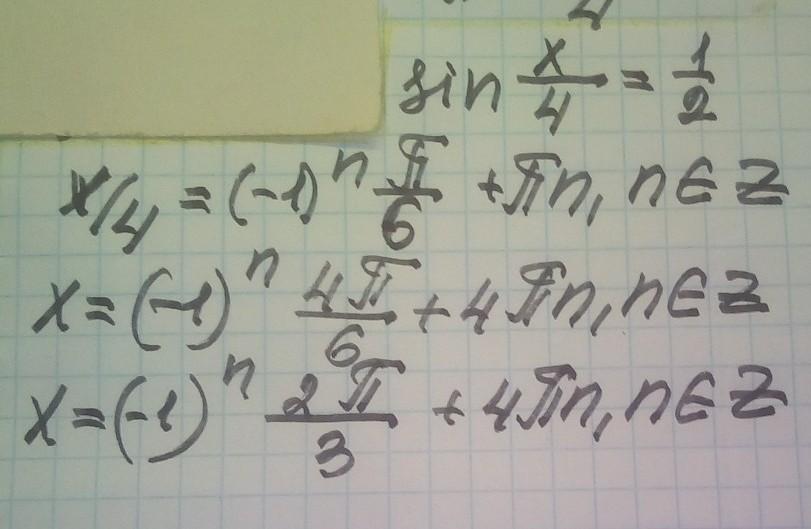 sin x/4 = 1/2
x/4 = (-1)^n π/6 + πn, n ∈ Z
x = (-1)^n 4π/6 + 4πn, n ∈ Z
x = (-1)^n 2π/3 + 4πn, n ∈ Z